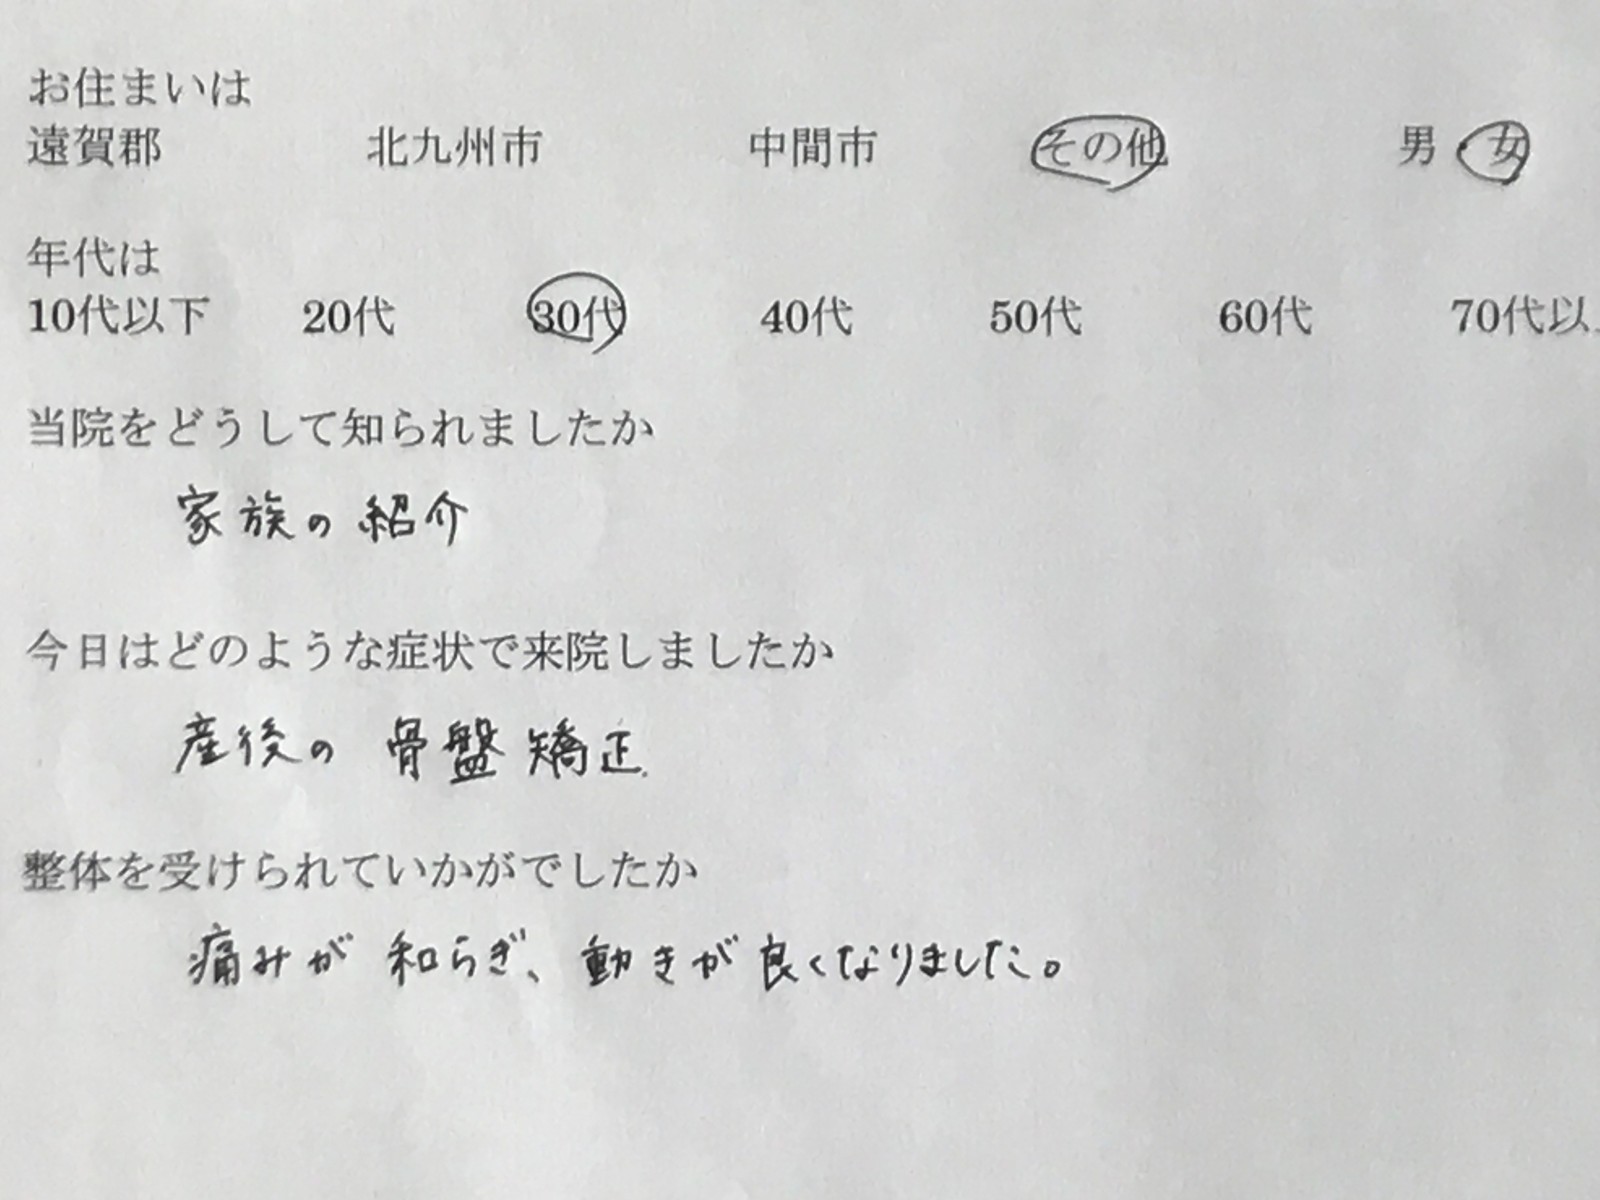 お住まいは
遠賀郡 北九州市 中間市 その他 男・女
年代は
10代以下 20代 30代 40代 50代 60代 70代以
当院をどうして知られましたか
家族の紹介
今日はどのような症状で来院しましたか
産後の 骨盤矯正
整体を受けられていかがでしたか
痛みが 和らぎ、動きが良くなりました。